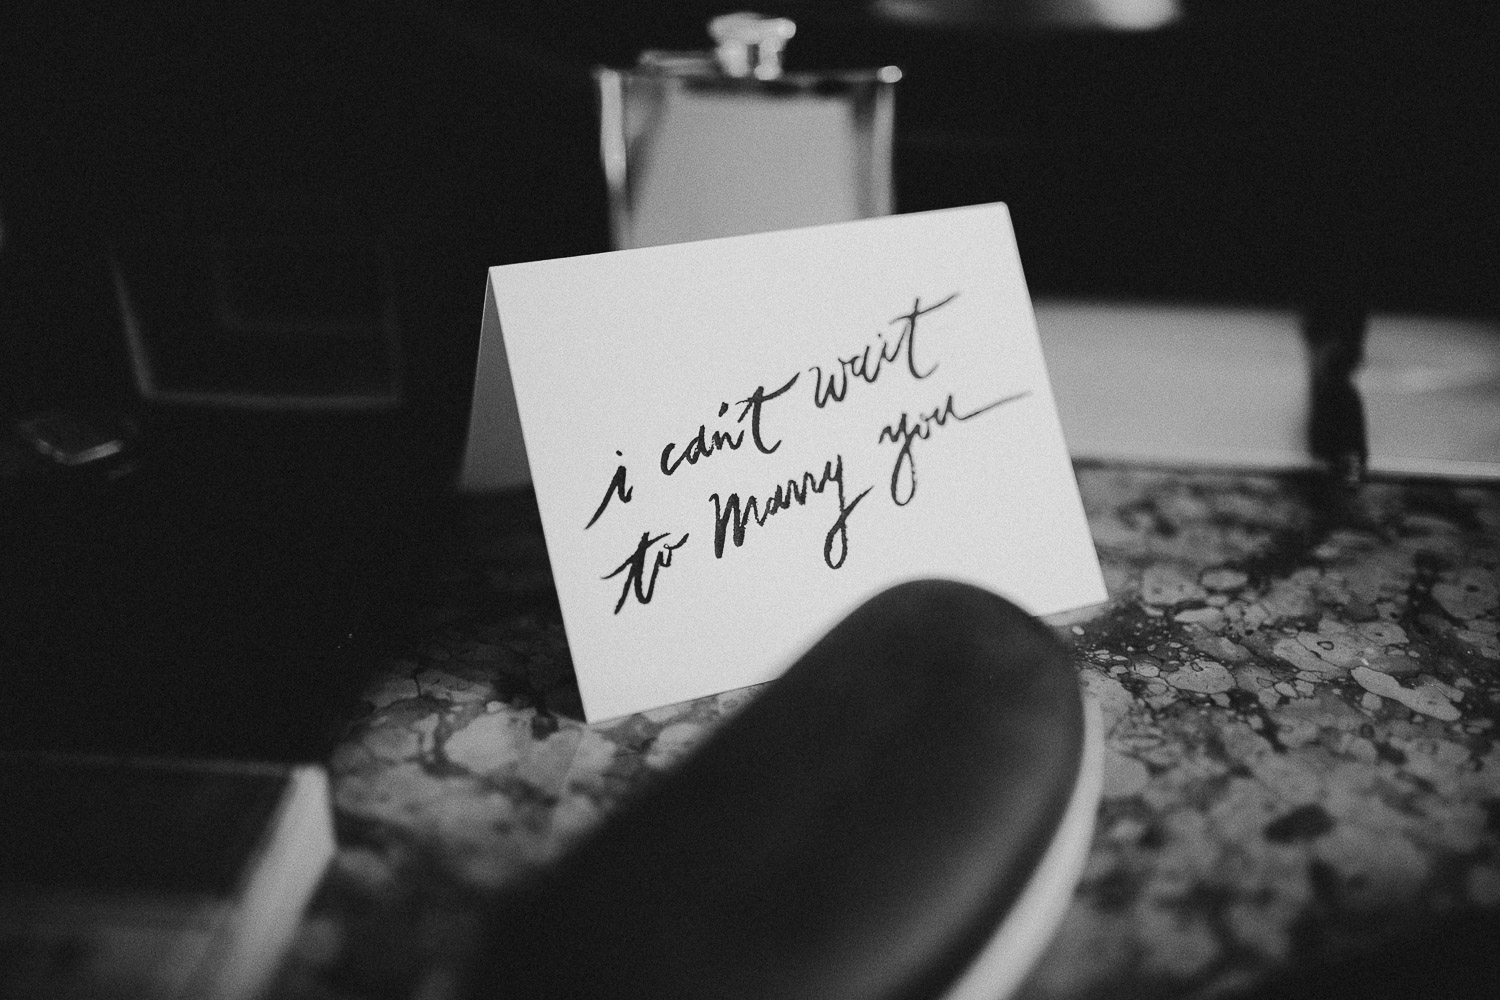 i can't wait
to marry you